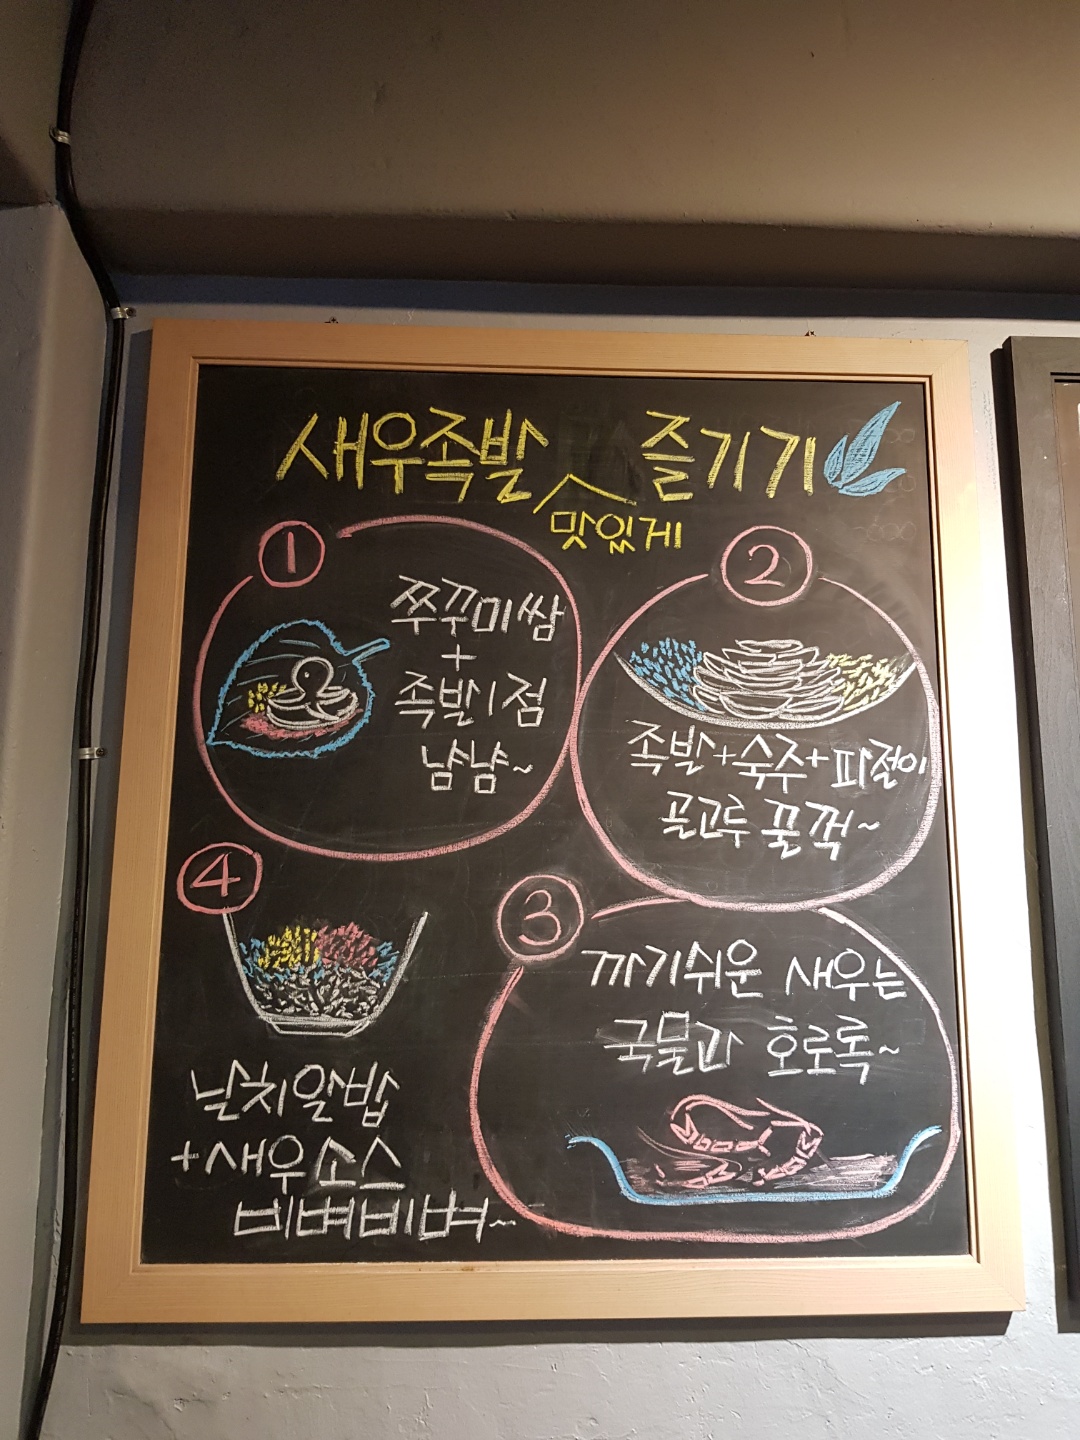 새우족발 즐기기
맛있게
1
쭈꾸미쌈
+
족발1점
냠냠~
2
족발+숙주+파절이
골고루 꿀꺽~
3
까기쉬운 새우는
국물과 호로록~
4
날치알밥
+새우소스
비벼비벼~